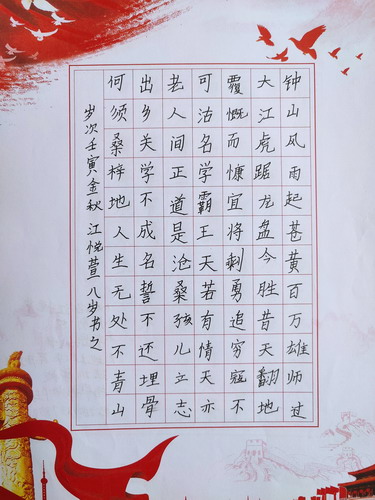 钟山风雨起苍黄百万雄师过
大江虎踞龙盘今胜昔天翻地
覆慨而慷宜将剩勇追穷寇不
可沽名学霸王天若有情天亦
老人间正道是沧桑孩儿立志
出乡关学不成名誓不还埋骨
何须桑梓地人生无处不青山
岁次壬寅金秋江悦萱八岁书之